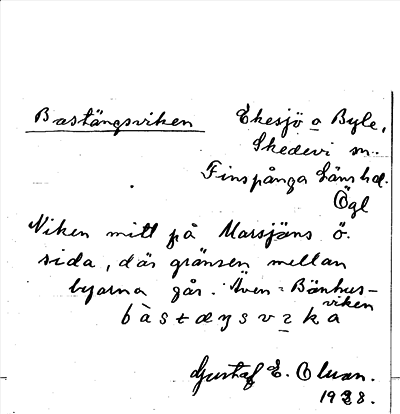 Bastängsviken
Ekesjö o Byle,
Skedevi sn.
Finspånga läns hd.
Ögl
Viken mitt på Marsjöns ö.
sida, där gränsen mellan
byarna går. Även = Bönhus-
viken
Gustaf E. Olsson.
1928.